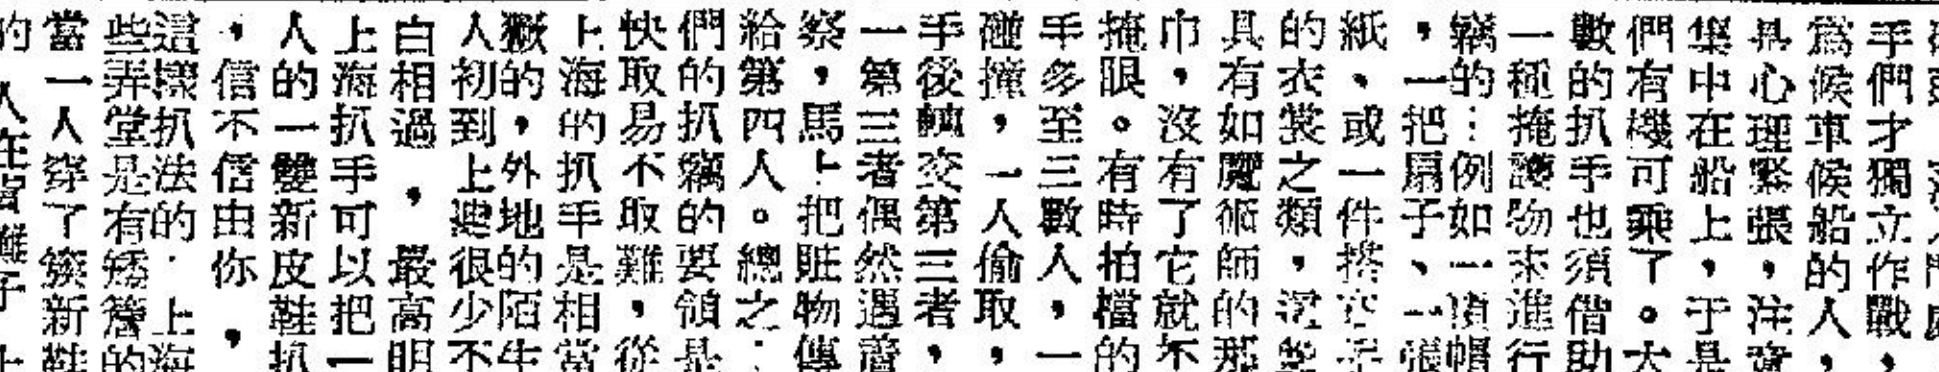 手們才獨立作戰，
為候車候船的人，
具心理緊張，注意
集中在船上，于是
們有機可乘了。大
數的扒手也須借助
一種掩護物來進行
竊的：例如一頂帽
，一把扇子、一張
紙、或一件搭
的衣裳之類，
具有如魔術師的那
巾，沒有了它就不
掩眼。有時拍檔的
手多至三數人，一
碰撞，一人偷取，
手後轉交第三者，
一第三者偶然遇
察，馬上把贓物傳
給第四人。總之：
們的扒竊的要領是
快取易不取難，從
上海的扒手是相當
的，外地的陌生
人初到上很少不
白相過，最高明
上海扒手可以把一
人的一雙新皮鞋扒
，信不信由你，
這樣扒法的．上海
些弄堂是有矮簷的
當一人穿了簇新鞋
的人在